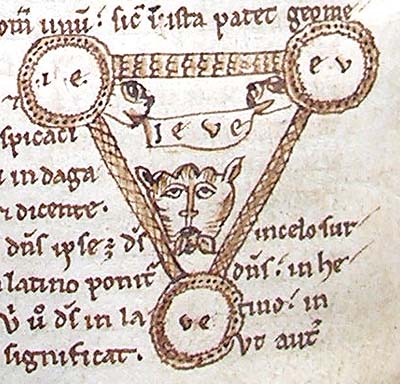 unu᷒: sic̄ ista patet geome
·i·e· e v
ieve
spicaci
indaga
dicente·
dn̄s ipse ꝫ ds̄ incelo sur
latino ponit᷒ dn̄s: in he
ds̄ in la ve tino: in
significat. vt aut᷒